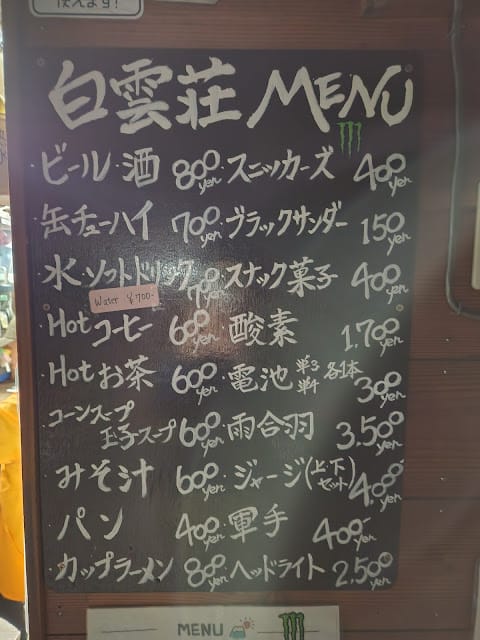 使えます!
白雲荘 MENU
・ビール・酒 800yen
・缶チューハイ 700yen
・水・ソフトドリンク 700yen
Water ¥700-
・Hotコーヒー 600yen
・Hotお茶 600yen
・コーンスープ
玉子スープ 600yen
・みそ汁 600yen
・パン 400yen
・カップラーメン 800yen
・スニッカーズ 400yen
・ブラックサンダー 150yen
・スナック菓子 400yen
・酸素 1.700yen
・電池 単3 単4 各1本 300yen
・雨合羽 3.500yen
・ジャージ(上・下セット) 4.000yen
・軍手 400-yen
・ヘッドライト 2.500yen
MENU